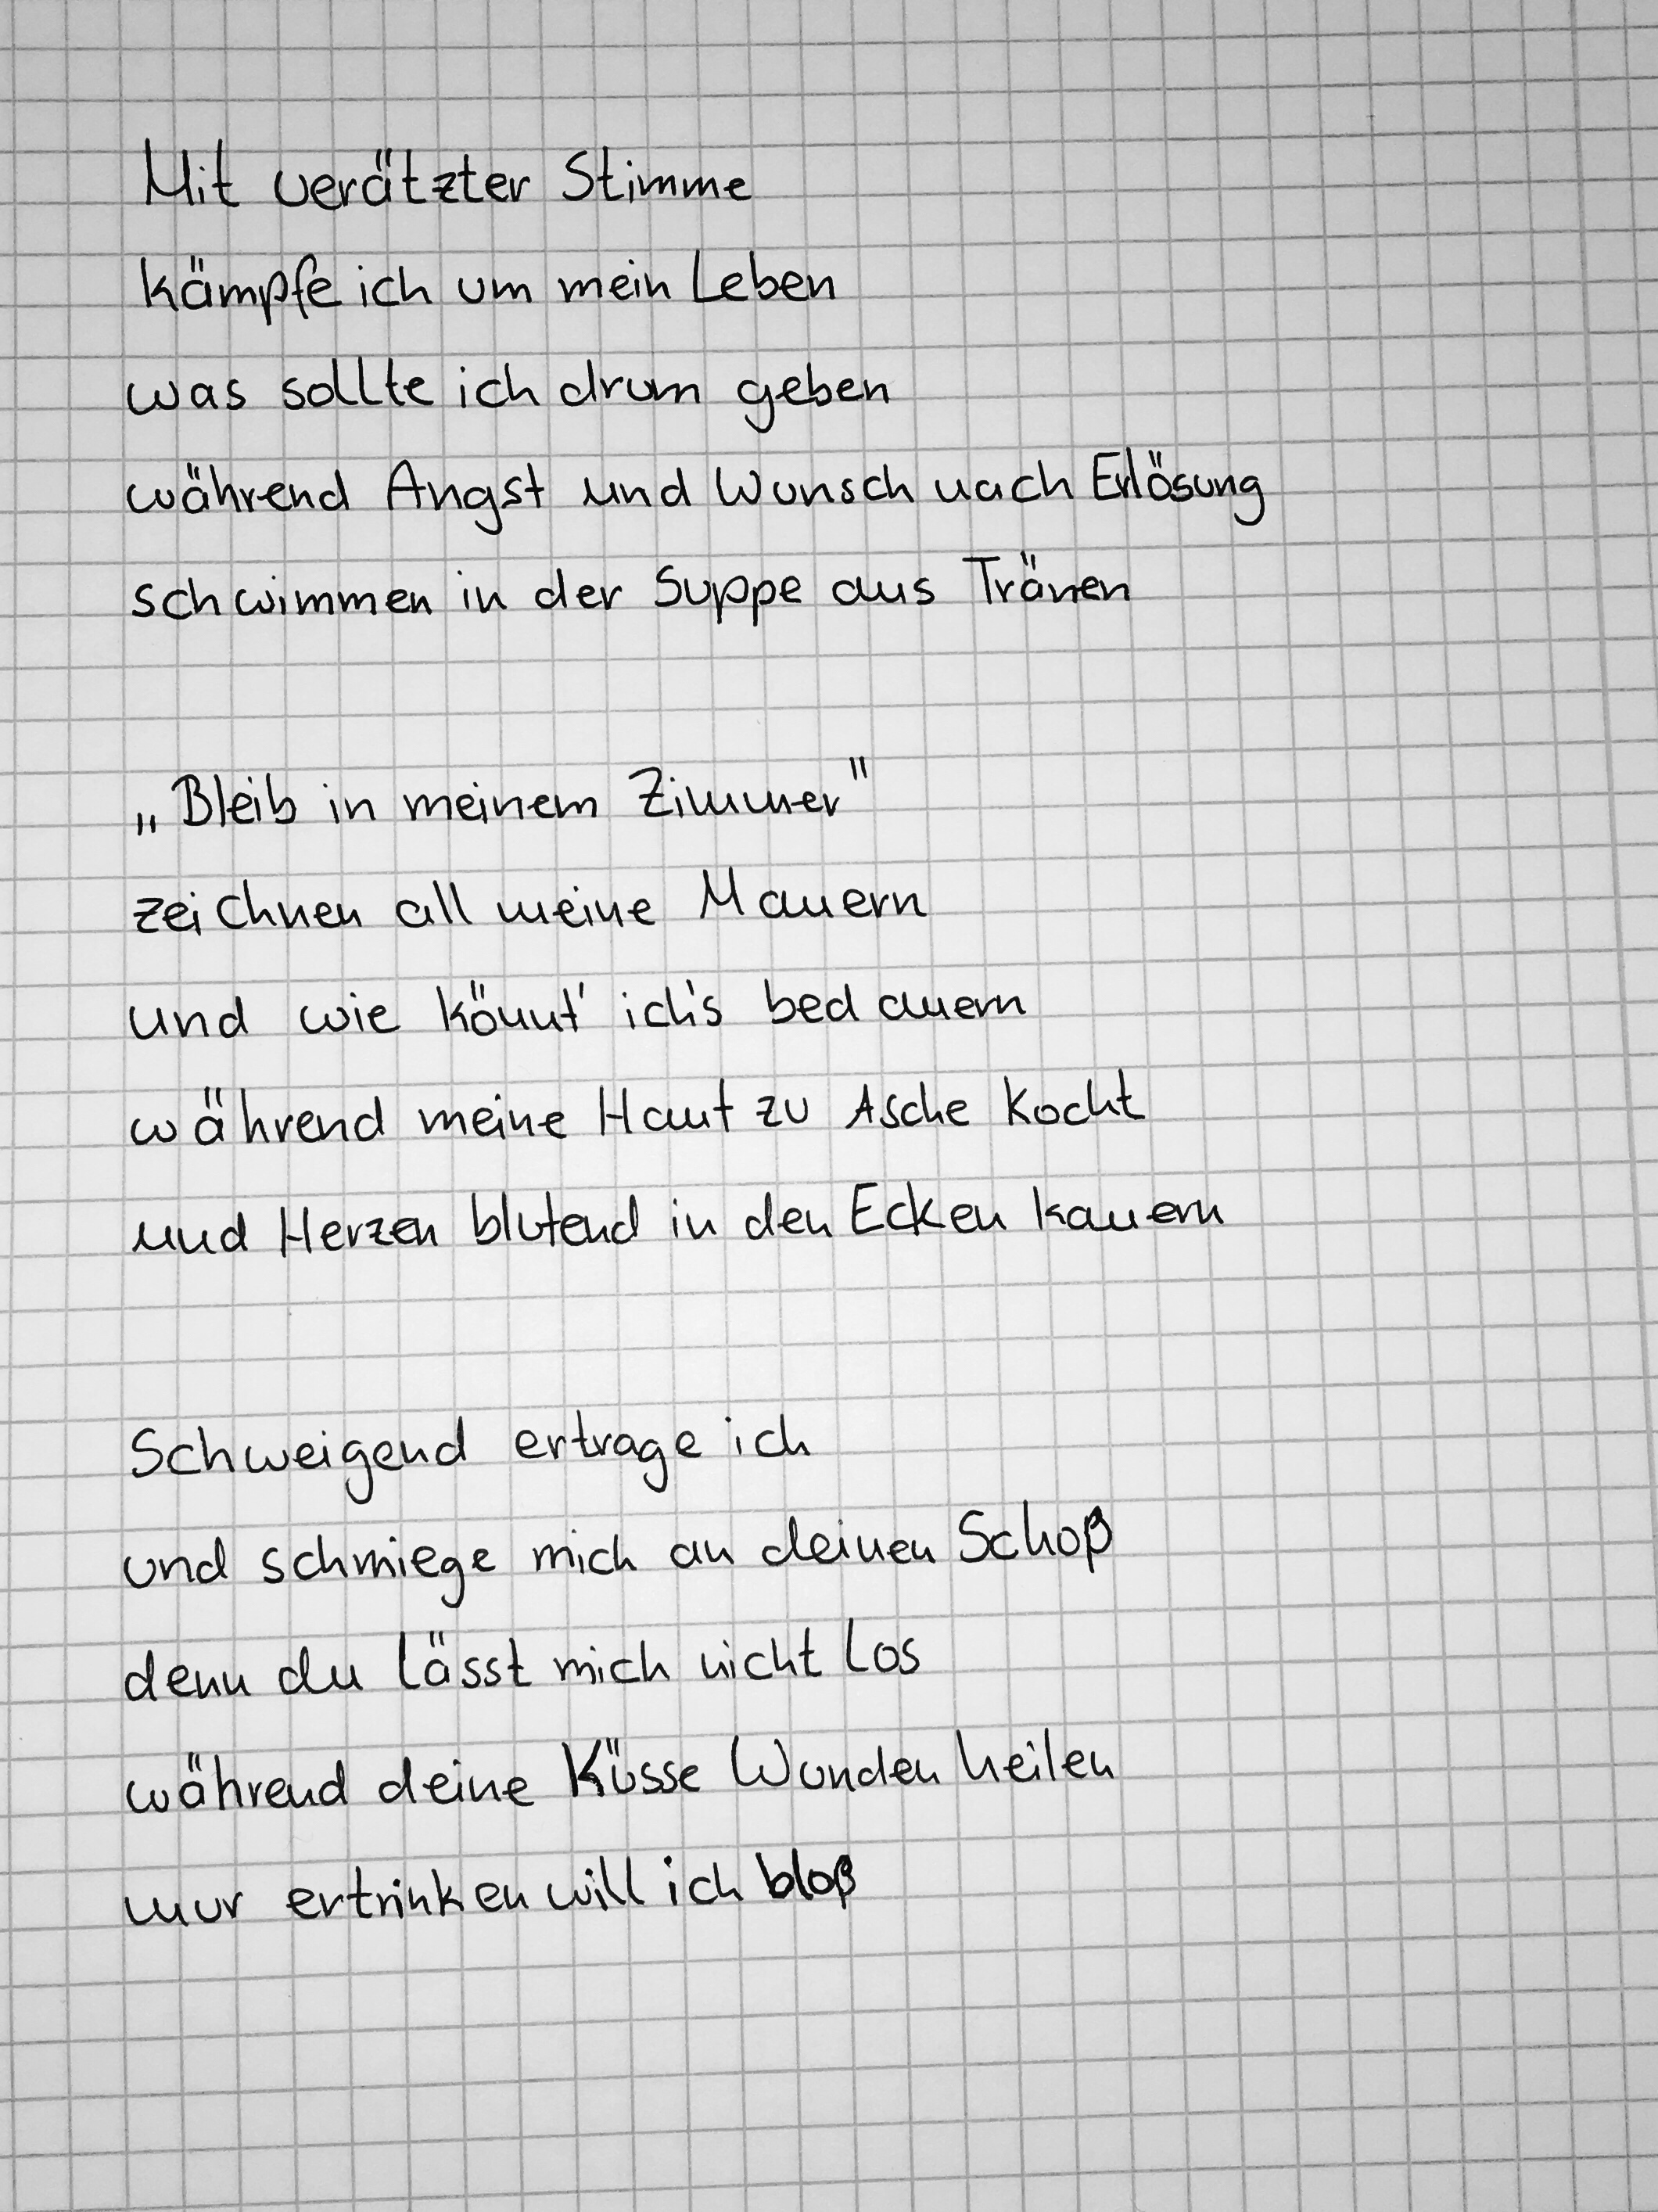 Mit verätzter Stimme
kämpfe ich um mein Leben
was sollte ich drum geben
während Angst und Wunsch nach Erlösung
schwimmen in der Suppe aus Tränen
„Bleib in meinem Zimmer"
zeichnen all meine Mauern
und wie könnt' ich's bedauern
während meine Haut zu Asche kocht
und Herzen blutend in den Ecken kauern
Schweigend ertrage ich
und schmiege mich an deinen Schoß
denn du lässt mich nicht los
während deine Küsse Wunden heilen
nur ertrinken will ich bloß